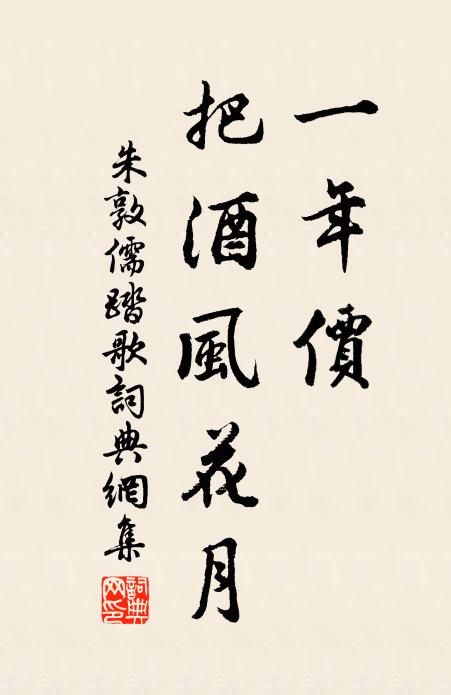 一年價
把酒風花月
朱敦儒踏歌詞典網集
詞典網印